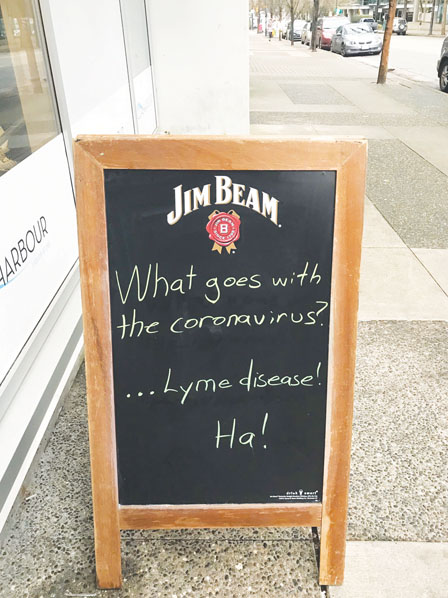 HARBOUR
JIM BEAM.
B
What goes with
the coronavirus?
...Lyme disease!
Ha!
drink smart